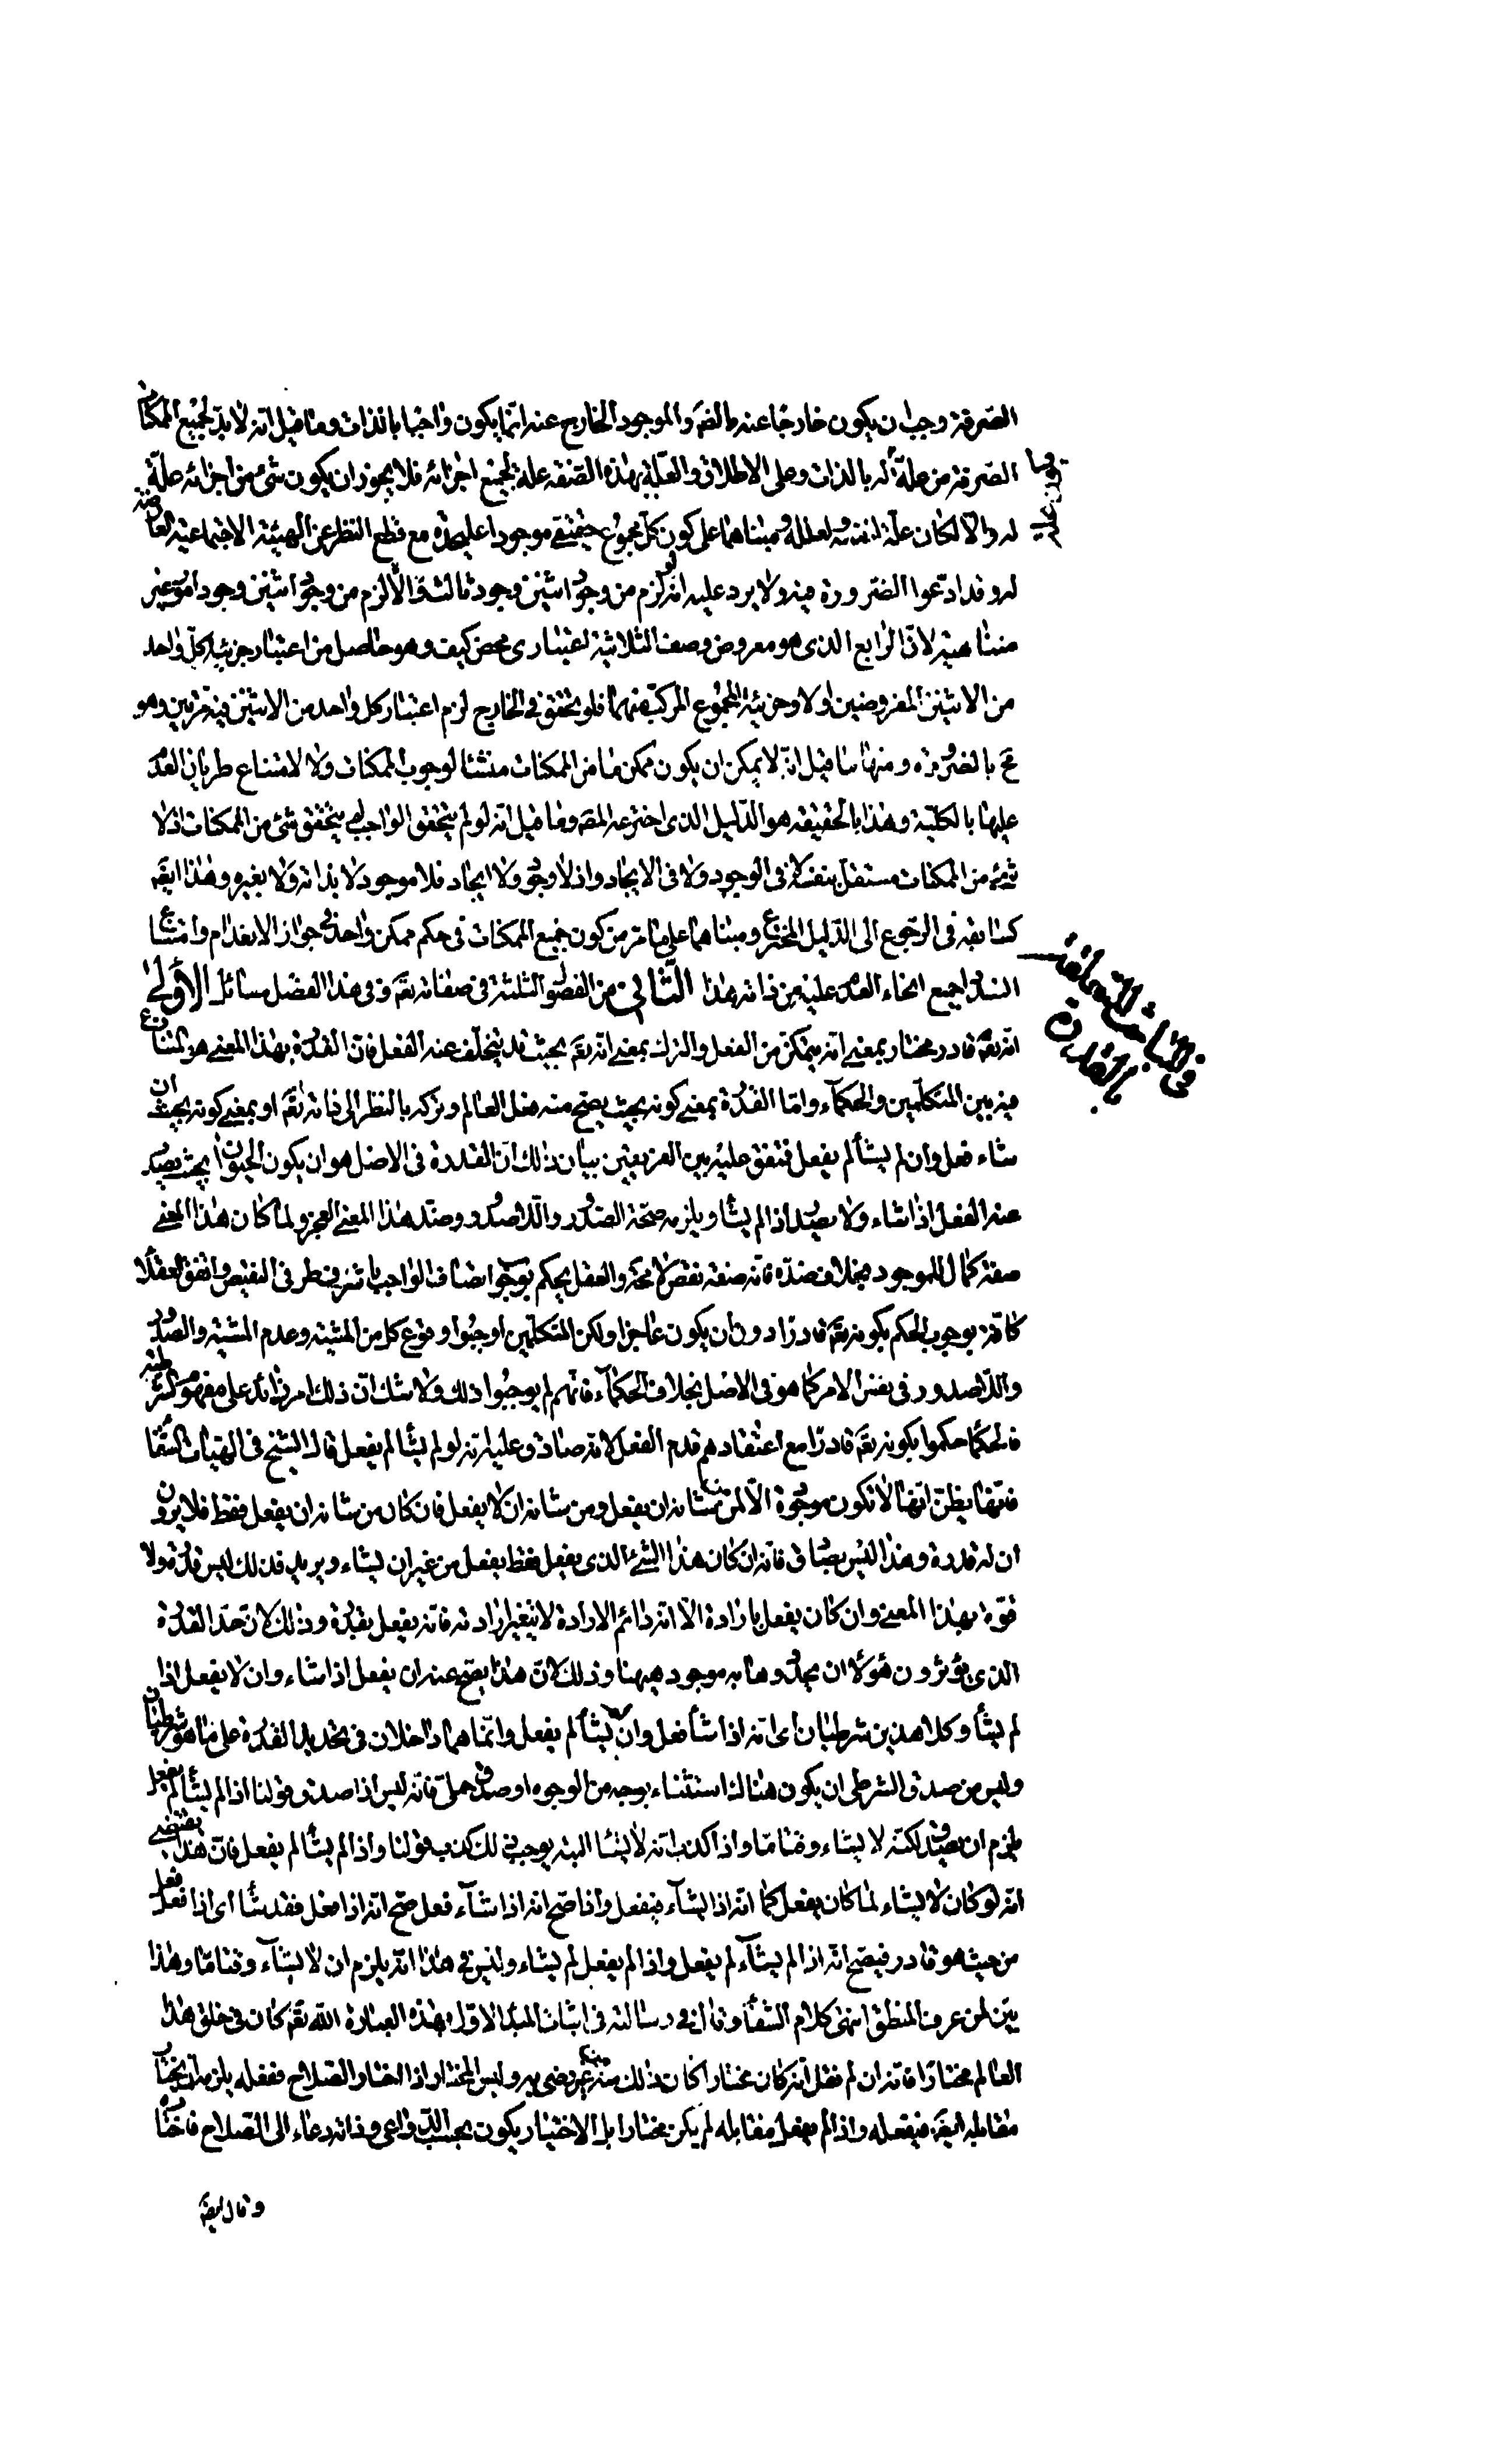 الصرفة وجب ان يكون خارجا عنه بالضرورة والموجود الخارج عنه انما يكون واجبا بالذات وما قيل انه لا بد لجميع الممكنات
الصرفة من علة له بالذات وعلى الاطلاق والعلة بهذه الصفة علة لجميع اجزائه فلا يجوز ان يكون شئ من اجزائه علة
له والا لكان علة لنفسه ولعلله ومبناهما على كون كل مجموع حقيقى موجودا عليحدة مع قطع النظر عن الهيئة الاجتماعية العارضة
له وقد ادعوا الضرورة فيه ولا يرد عليه انه لو لزم من وجود اثنين وجود ثالث والا لزم من وجود اثنين وجود امور غير
متناهية لان الرابع الذى هو معروض وصف الثلاثية اعتبارى محض كيف وهو حاصل من اعتبار جزئية كل واحد
من الاثنين المفروضين اولا وجزئية المجموع المركب منهما فلو تحقق فى الخارج لزم اعتبار كل واحد من الاثنين فيه مرتين وهو
مح بالضرورة ومنها ما قيل انه لا يمكن ان يكون ممكن ما من الممكنات منشئا لوجوب الممكنات ولا لامتناع طريان العدم
عليها بالكلية وهذا بالحقيقة هو الدليل الذى اخترعه المصـ وما قيل انه لو لم يتحقق الواجب لم يتحقق شئ من الممكنات اذ لا
شئ من الممكنات مستقل بنفسه لا فى الوجود ولا فى الايجاد واذ لا وجود ولا ايجاد فلا موجود لا بذاته ولا بغيره وهذا ايضـ
كسابقه فى الرجوع الى الدليل المخترع ومبناهما على ما مر من كون جميع الممكنات فى حكم ممكن واحد فى جواز الانعدام وامتناع
انسداد جميع انحاء العدم عليه من ذاته هذا الثانى من الفصول الثلثة فى صفاته تعـ وفى هذا الفصل مسائل الاولى
انه تعـ قادر مختار بمعنى انه يتمكن من الفعل والترك بمعنى انه تعـ بحيث قد يتخلف عنه الفعل فان القدرة بهذا المعنى هو المتنازع
فيه بين المتكلمين والحكماء واما القدرة بمعنى كونه بحيث يصح منه فعل العالم وتركه بالنظر الى ذاته تعـ او بمعنى كونه بحيث ان
شاء فعل وان لم يشأ لم يفعل فمتفق عليه بين الفريقين بيان ذلك ان القدرة فى الاصل هو ان يكون الحيوان بحيث يصدر
عنه الفعل اذا شاء ولا يصدر اذا لم يشأ ويلزمه صحة الصدور واللاصدور وضد هذا المعنى العجز ولما كان هذا المعنى
صفة كمال للموجود بخلاف ضده فانه صفة نقص لا محة والعقل يحكم بوجوب اتصاف الواجب باشرف طرفى النقيض واتفق العقلاء
كافة بوجوب الحكم بكونه تعـ قادرا دون ان يكون عاجزا ولكن المتكلمين اوجبوا وقوع كل من المشية وعدم المشية والصدور
واللاصدور فى نفس الامر كما هو فى الاصل بخلاف الحكماء فانهم لم يوجبوا ذلك ولا شك ان ذلك امر زائد على مفهوم الشرطية
فالحكماء حكموا بكونه تعـ قادرا مع اعتقادهم قدم الفعل لانه صادق عليه انه لو لم يشأ لم يفعل قال الشيخ فى الهيات الشفاء
فتقها يظن انها لا تكون موجودة الا لمن من شانه ان يفعل ومن شانه ان لا يفعل فان كان من شانه ان يفعل فقط فلا يرون
ان له قدرة وهذا ليس بصادق فانه ان كان هذا الشئ الذى يفعل فقط يفعل من غير ان يشاء ويريد فذلك ليس قدرة ولا
قوة بهذا المعنى وان كان يفعل بارادة الا انه دائم الارادة لا يتغير ارادته فانه يفعل بقدرة وذلك لان حد القدرة
الذى يؤثرون هؤلاء ان يحدوها به موجود هيهنا وذلك لان هذا يصح عنه ان يفعل اذا شاء وان لا يفعل اذا
لم يشأ وكلا هذين شرطيان اى انه اذا شأ فعل وان لم يشأ لم يفعل وانما هما داخلان فى تحديد القدرة على ما هو شرطيان
وليس من صدق الشرطى ان يكون هناك استثناء بوجه من الوجوه او صدق حملى فانه ليس اذا صدق قولنا اذا لم يشأ لم يفعل
يلزم ان يصدق لكنه لا يشاء وقتا ما واذا كذب انه لا يشأ البتة يوجب ذلك كذب قولنا واذا لم يشأ لم يفعل فان هذا يقتضى
انه لو كان لا يشاء لما كان يفعل كما انه اذا يشآء فيفعل واذا صح انه اذا شآء فعل صح انه اذا فعل فقد شأ اى اذا فعل فعل
من حيث هو قادر فيصح انه اذا لم يشآء لم يفعل واذا لم يفعل لم يشاء وليس فى هذا انه يلزم ان لا يشآء وقتا ما وهذا
بين لمن عرف المنطق انتهى كلام الشفأ وقال فى رسالته فى اثبات المبدأ الاول بهذه العبارة الله تعـ كان فى خلق هذا
العالم مختارا فانه ان لم نقل انه كان مختارا كان ذلك منه غير رضى به وليس المختار اذا اختار الصلاح ففعله يلزمه ان يختار
مقابله ايضـ فيفعله واذا لم يفعل مقابله لم يكن مختارا بل الاختيار يكون بحسب الدواعى وذاته دعاء الى الصلاح فاختاره
وقال ايضـ
فى المباحث المتعلقة
بالقدرة